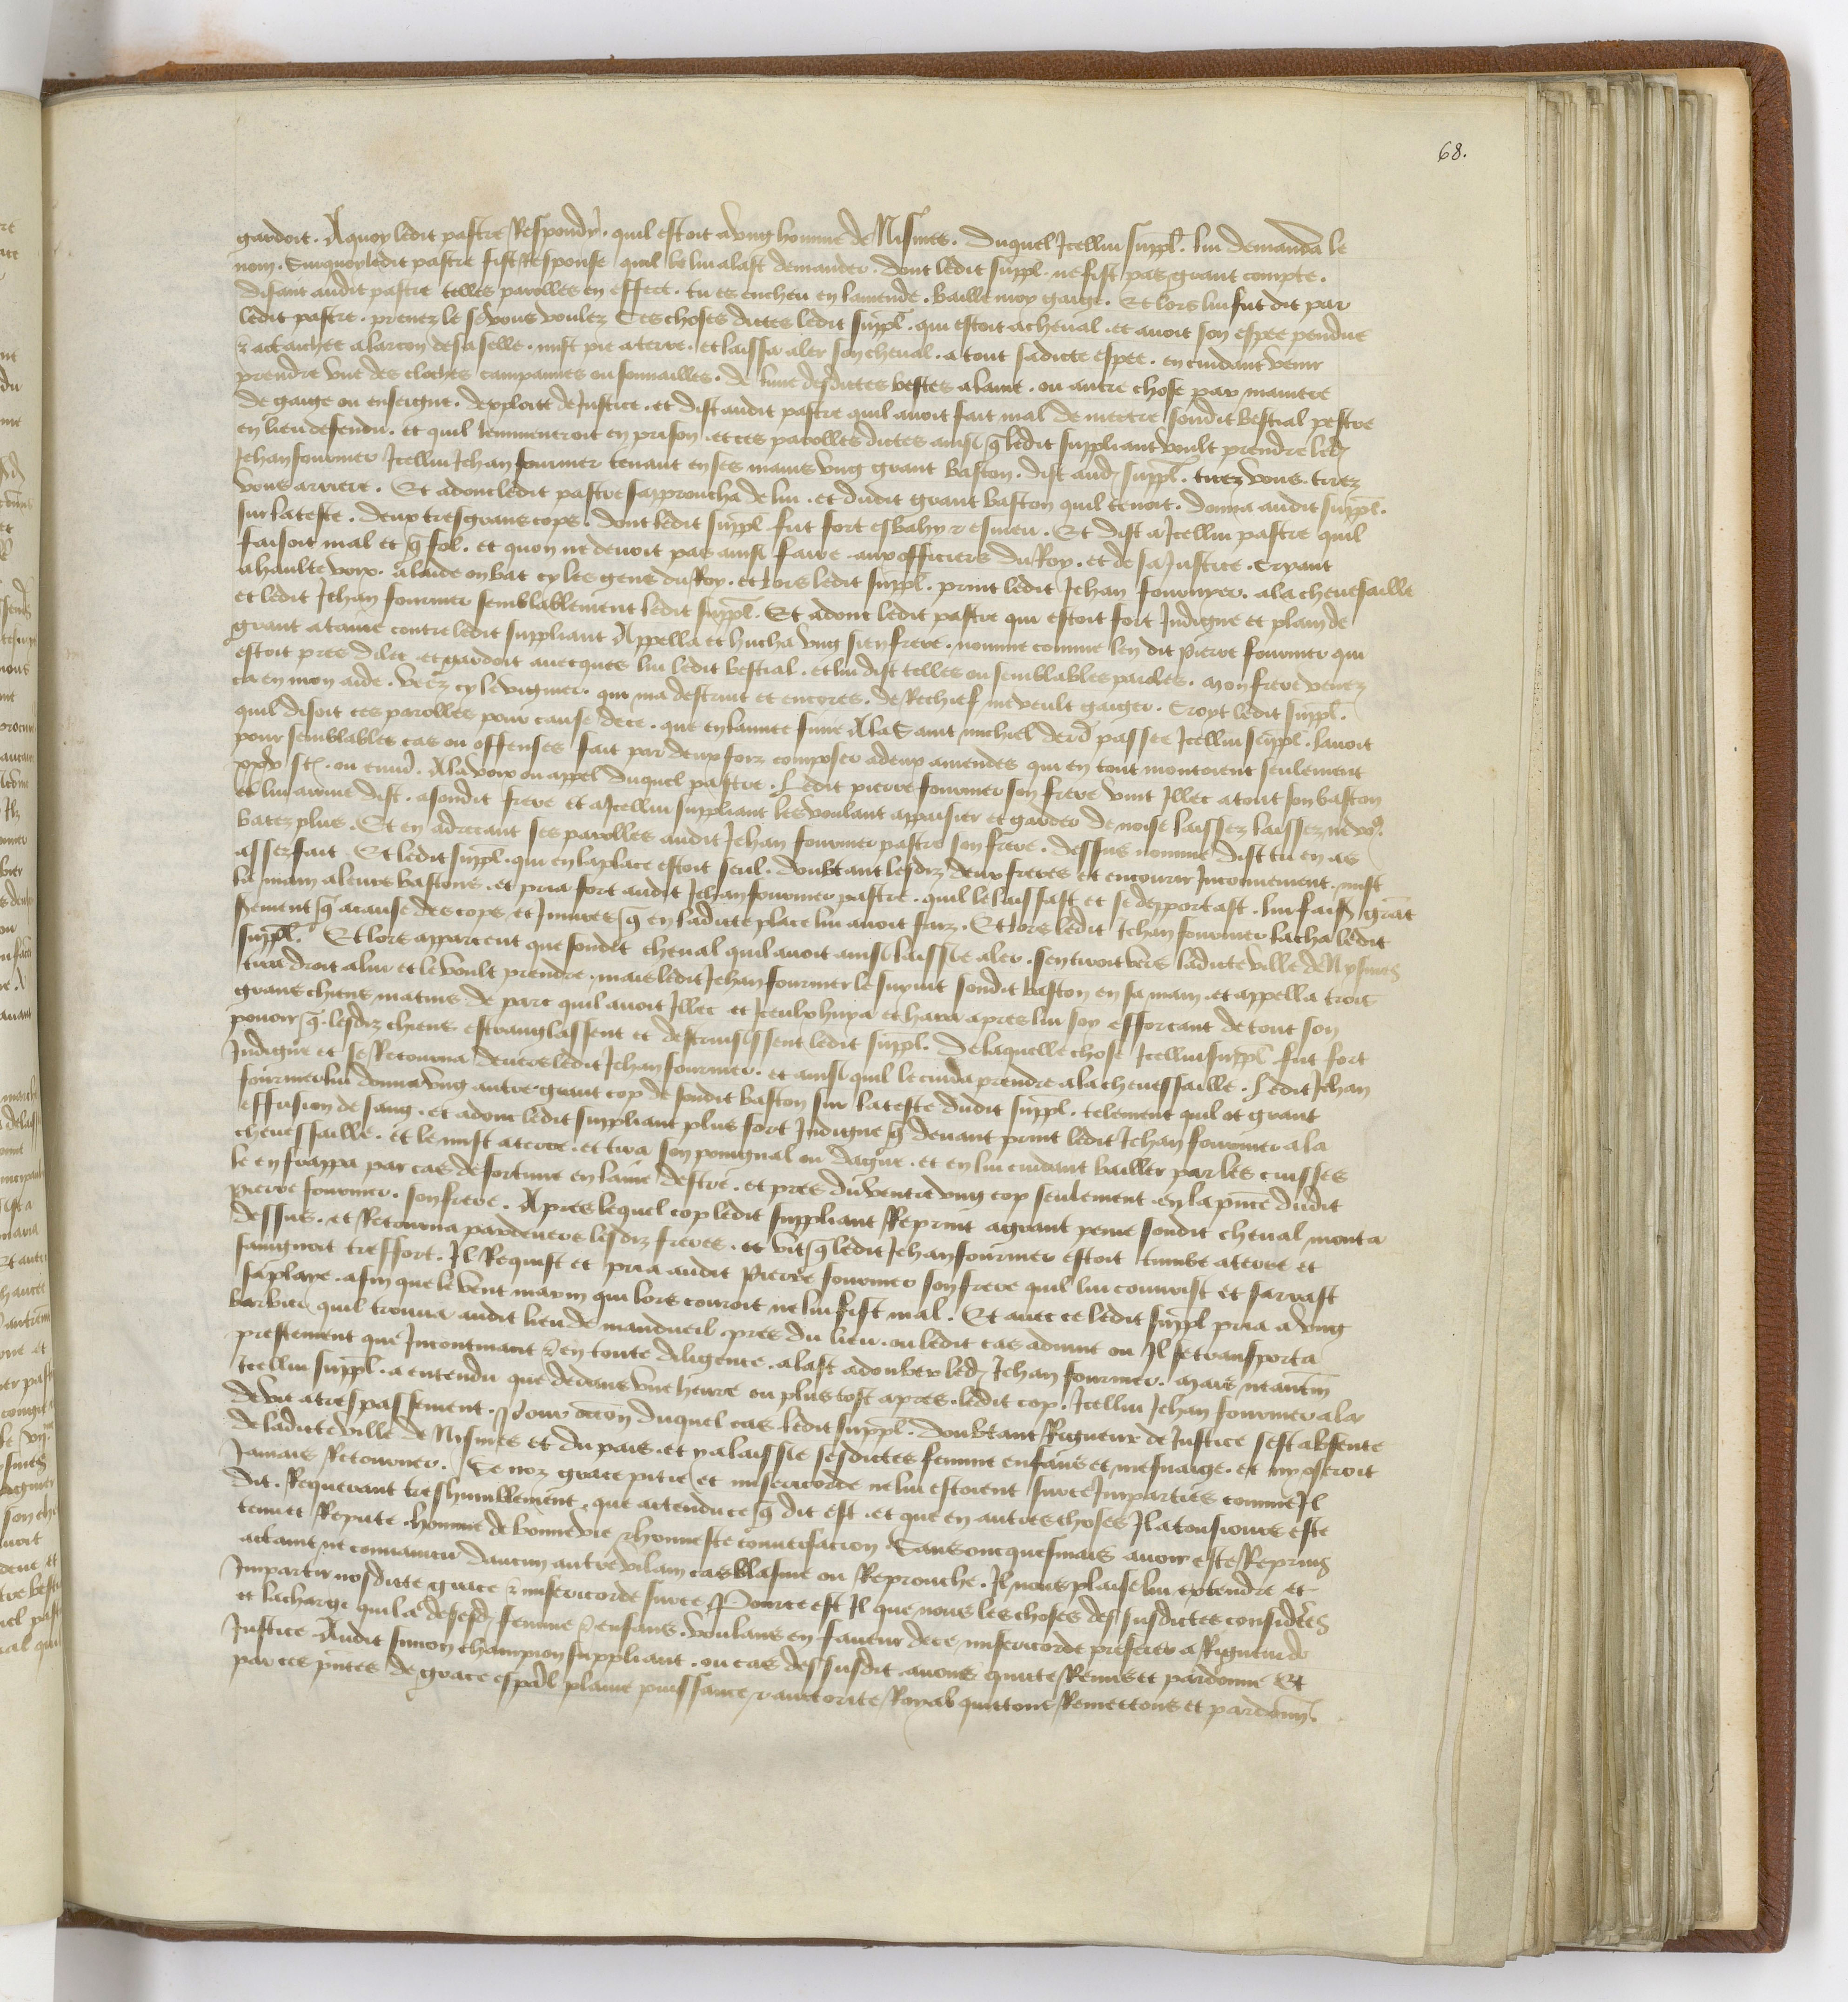 68.
gardoit. A quoy ledit pastre Respondy. quil estoit a ung homme de Nismes. Duquel Icellui suppl. lui demanda le
nom. Surquoy ledit pastre fist Response quil le lui alast demander. dont ledit suppl. ne fist pas grant compte.
disant audit pastre telles parolles en effect. tu es encheu en lamende. baille moy gaige. Et lors lui fut dit par
ledit pastre. prenez le se vous voulez Ces choses dictes ledit suppl. qui estoit a cheval. et avoit son espee pendue
& actaichee a larcon de sa selle. mist pie a terre. et laissa aler son cheval. a tout sadicte espee. en cuidant venir
prendre une des cloches campannes ou sonnailles. de lune desdictes bestes a laine. ou autre chose par maniere
de gaige ou enseigne. dexploit de Justice. et dist audit pastre quil avoit fait mal de mectre sondit bestial pestre
en lieu defendu. et quil lenmenroit en prison. et ces parolles dictes ainsi q ledit suppliant voult prendre led
Jehan fournier Icellui Jehan fournier tenant en ses mains ung grant baston. dist aud suppl. tirez vous tirez
vous arriere. Et adonc ledit pastre sapproucha de lui. et dudit grant baston quil tenoit. donna audit suppl.
sur la teste. deux tresgrans cops. dont ledit suppl. fut fort esbahy & esmeu. Et dist a Icellui pastre quil
faisoit mal et q fol. et quon ne devoit pas ainsi faire aux officiers du Roy. et de sa Justice. Cryant
a haulte voix. a laide on bat cy les gens du Roy. et lors ledit suppl. print ledit Jehan fournyer. a la chevesaille
et ledit Jehan fournier semblablement ledit suppl. Et adonc ledit pastre qui estoit fort Indigne et plain de
grant ataine contre ledit suppliant Appella et hucha ung sien frere. nomme comme len dit Pierre fournier qui
estoit pres dilec. et gardoit avecques lui ledit bestial. et lui dist telles ou semblables paroles. mon frere venez
ca en mon aide. veez cy le viguier. qui ma destruit et encores. de Rechief me veult gaiger. Croyt ledit suppl.
quil disoit ces parolles pour cause de ce. que en lannee finie A la Saint michiel derr passee Icellui suppl. lavoit
pour semblables cas ou offenses fait par deux foiz composer a deux amendes qui en tout montoient seulement
ou environ. A la voix ou appel duquel pastre. Ledit pierre fournier son frere vint Illec a tout son baston
et lui arrive dist. a sondit frere et a Icellui suppliant les voulant appaisier et garder de noise laissez laissez ne vo
batez plus. Et en adrecant ses parolles audit Jehan fournier pastre son frere. dessus nomme dist tu en as
assez fait Et ledit suppl. qui en la place estoit seul. doubtant lesdiz deux freres et encourir Inconvenient. mist
la main a leurs bastons. et pria fort audit Jehan fournier pastre. quil le laissast et se deportast. lui faisant grant
serment q a cause des cops et Injures q en ladicte place lui avoit faiz. Et lors ledit Jehan fournier lacha ledit
suppl. Et lors appercent que sondit cheval quil avoit ainsi laissie aler. sen tiroit vers ladicte ville de Nysmes
tira droit a lui et le voult prendre. mais ledit Jehan fournier le suyvit sondit baston en sa main. et appella trois
grans chiens matins de parc quil avoit Illec et Iceulx huya et hara apres lui soy efforcant de tout son
povoir q lesdiz chiens estranglassent et destruisissent ledit suppl. De laquelle chose Icellui suppl. fut fort
Indigne et se Retourna devers ledit Jehan fournier. et ainsi quil le cuida prendre a la chevessaille. Ledit Jehan
fournier lui donna ung autre grant cop de sondit baston sur la teste dudit suppl. telement quil ot grant
effusion de sang. et adonc ledit suppliant plus fort Indigne q devant print ledit Jehan fournier a la
chevessaille. et le mist a terre. et tira son poingnal ou dague. et en lui cuidant bailler par les cuisses
le en frappa par cas de fortune en laine destre. et pres du ventre ung cop seulement en la presence dudit
Pierre fournier. son frere. Apres lequel cop ledit suppliant Reprint a grant peine sondit cheval monta
dessus. et Retourna pardevers lesdiz freres. et vit q ledit Jehan fournier estoit tumbe a terre et
saingnoit tresfort. Il Requist et pria audit Pierre fournier son frere quil lui couvrist et serrast
sa playe. afin que le vent marin qui lors couroit ne lui fist mal. Et avec ce ledit suppl pria a ung
barbier quil trouva audit lieu de mandueil pres du lieu. ou ledit cas advint ou Il se transporta
prestement que Incontinant & en toute diligence. alast adouber led Jehan fournier. mais neantm
Icellui suppl. a entendu que dedans une heure ou plus tost apres. ledit cop. Icellui Jehan fournier ala
de vie a trespassement. Pour occon duquel cas ledit suppl. doubtant Rigueur de Justice sest absente
de ladicte ville de Nismes et du pais. et y a laissie sesdictes femme enfans et mesnaige. et ny oseroit
Jamais Retourner. Se noz grace pitie et misericorde ne lui estoient sur ce Imparties comme Il
dit. Requerant treshumblement. que actendu ce q dit est. et que en autres choses Il a tousiours este
tenu et Repute. homme de bonne vie & honneste conversacion Sans oncquesmais avoir este Reprins
actaint ne convaincu daucun autre vilain cas blasme ou Reprouche. Il nous plaise lui extendre et
Impartir nosdicte grace & misericorde sur ce Pource est Il que nous les choses dessusdictes considerees
et la charge quil a de sesd femme & enfans. voulans en faveur de ce misericorde preferer a Rigueur de
Justice Audit simon champion suppliant. ou cas dessusdit. avons quicte Remis et pardonne Et
par ces presentes de grace espal plaine puissance & auctorite Royal quictons Remectons et pardonn.